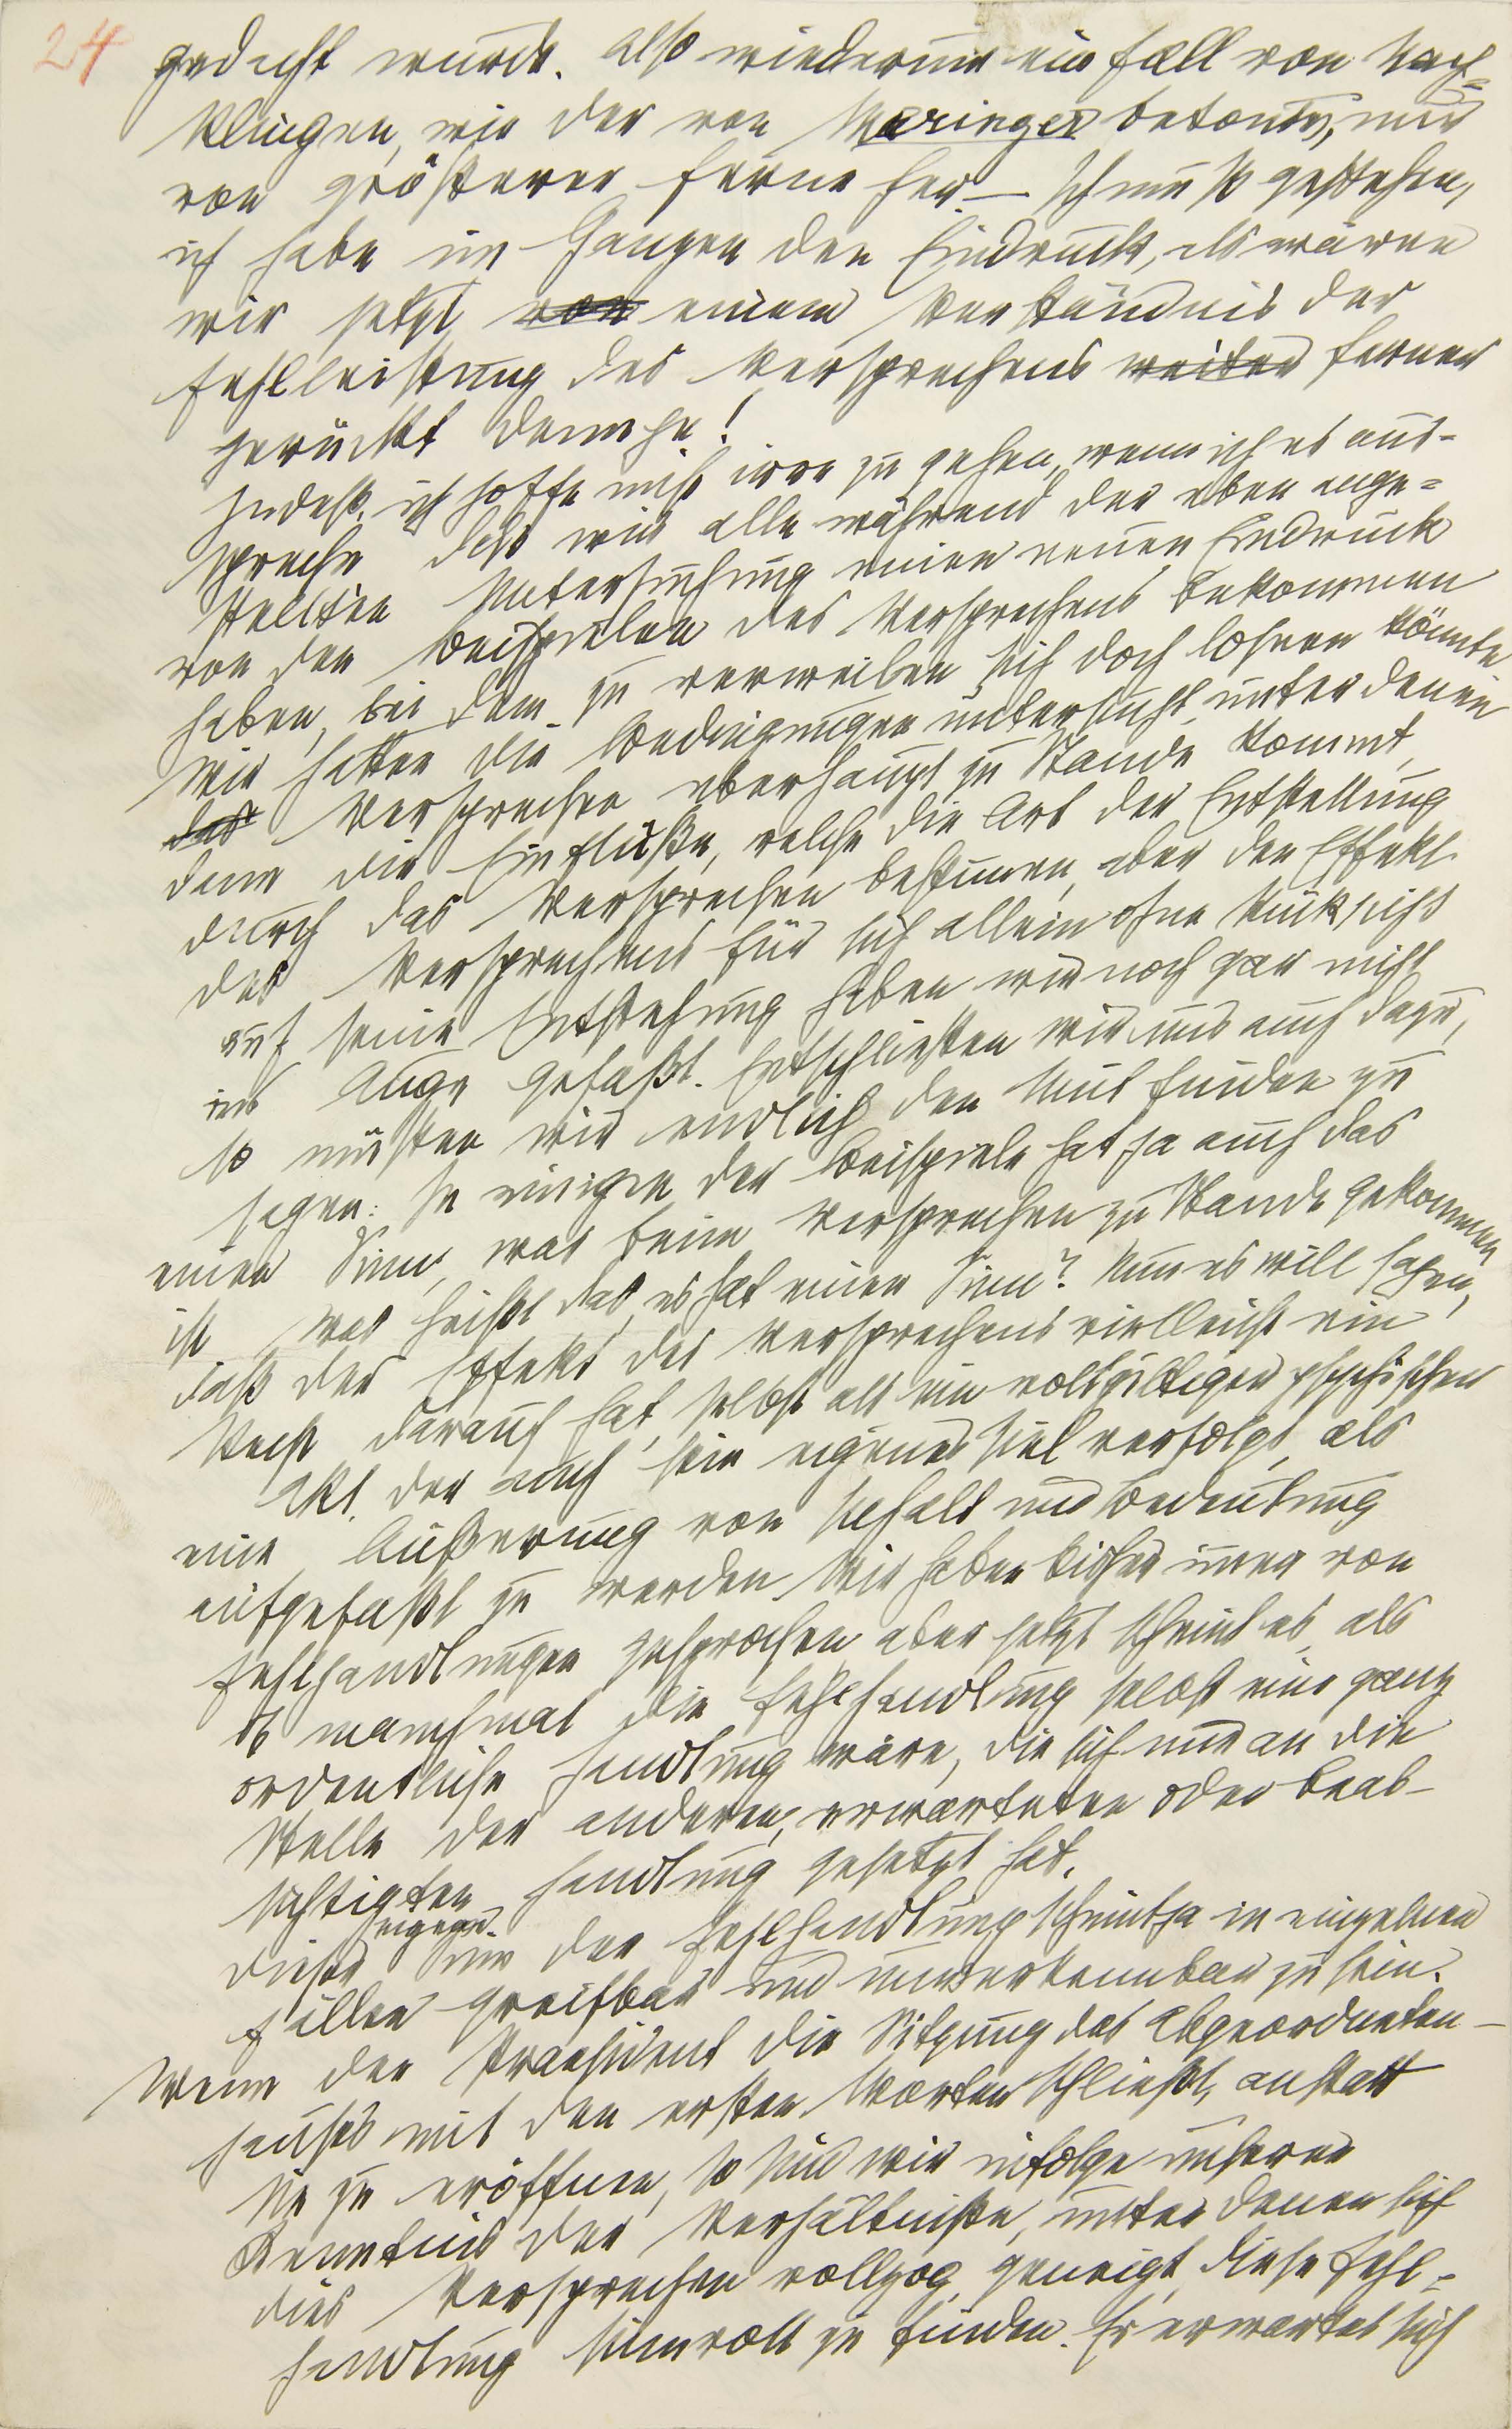 24
gedacht wurde. Also wiederum ein Fall von Nach=
klingen, wie der von Meringer betonte, nur
von größerer Ferne her. – Ich muß gestehen,
ich habe im Ganzen den Eindruck, als wären
wir jetzt von einem Verständnis der
Fehlleistung des Versprechens weiter ferner
gerückt denn je!
Indeß, ich hoffe nicht irre zu gehen, wenn ich es aus-
spreche daß wir alle während der eben ange=
stellten Untersuchung einen neuen Eindruck
von den Beispielen des Versprechens bekommen
haben, bei dem zu verweilen sich doch lohnen könnte
Wir hatten die Bedingungen untersucht, unter denen
das Versprechen überhaupt zu Stande kommt,
dann die Einflüße, welche die Art der Entstellung
durch das Versprechen bestimmen, aber den Effekt
des Versprechens für sich allein ohne Rücksicht
auf seine Entstehung haben wir noch gar nicht
ins Auge gefaßt. Entschließen wir uns auch dazu,
so müssen wir endlich den Mut finden zu
sagen: In einigen der Beispiele hat ja auch das
einen Sinn, was beim Versprechen zu Stande gekommen
ist Was heißt das, es hat einen Sinn? Nun es will sagen,
daß der Effekt des Versprechens vielleicht ein
Recht darauf hat, selbst als ein vollgiltiger psychischer
Akt, der auch sein eigenes Ziel verfolgt, als
eine Äußerung von Inhalt und Bedeutung
aufgefaßt zu werden. Wir haben bisher immer von
Fehlhandlungen gesprochen aber jetzt scheint es, als
ob manchmal die Fehlhandlung selbst eine ganz
ordentliche Handlung wäre, die sich nur an die
Stelle der anderen, erwarteten oder beab-
sichtigten Handlung gesetzt hat.
eigene
Dieser Sinn der Fehlhandlung scheint ja in einzelnen
Fällen greifbar und unverkennbar zu sein.
Wenn der Praesident die Sitzung des Abgeordneten-
hauses mit den ersten Worten schließt, anstatt
sie zu eröffnen, so sind wir infolge unserer
Kenntnis der Verhältniße, unter denen sich
dies Versprechen vollzog, geneigt, diese Fehl=
handlung sinnvoll zu finden. Er erwartet sich